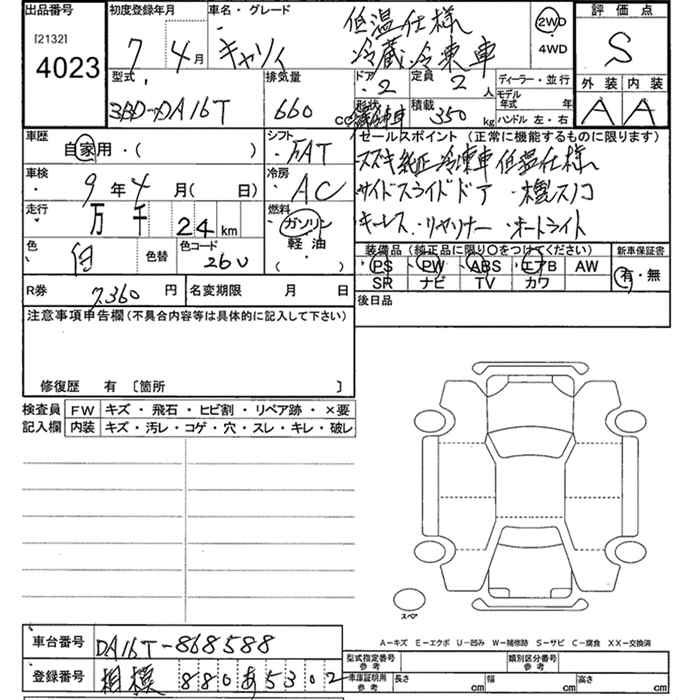 出品番号 [2132] 4023
初度登録年月 7年4月
車名・グレード キャリィ 低温仕様 冷蔵冷凍車
2WD
4WD
評価点 S
外装 A 内装 A
型式 3BD-DA16T
排気量 660 cc
ドア 2
定員 2 人
形状 冷凍車
積載 350 kg
ディーラー・並行
モデル年式 年
ハンドル 左・右
車歴 自家用・( )
シフト FAT
車検 9年4月( 日)
冷房 AC
走行 万 千 24 km
燃料 ガソリン 軽油 ( )
色 白 色替
色コード 26U
R券 7,360 円
名変期限 月 日
セールスポイント (正常に機能するものに限ります)
スズキ純正冷凍車低温仕様
サイドスライドドア ・木製スノコ
キーレス ・リヤソナー ・オートライト
装備品 (純正品に限り○をつけてください)
PS PW ABS エアB AW
SR ナビ TV カワ
新車保証書
有・無
後日品
注意事項申告欄 (不具合内容等は具体的に記入して下さい)
修復歴 有 〔箇所 〕
検査員 FW キズ・飛石・ヒビ割・リペア跡・×要
記入欄 内装 キズ・汚レ・コゲ・穴・スレ・キレ・破レ
スペア
A-キズ E-エクボ U-凹み W-補修跡 S-サビ C-腐食 XX-交換済
車台番号 DA16T-868588
登録番号 相模 880 あ 5302
型式指定番号 参考
類別区分番号 参考
車庫証明用 参考 長さ cm 幅 cm 高さ cm